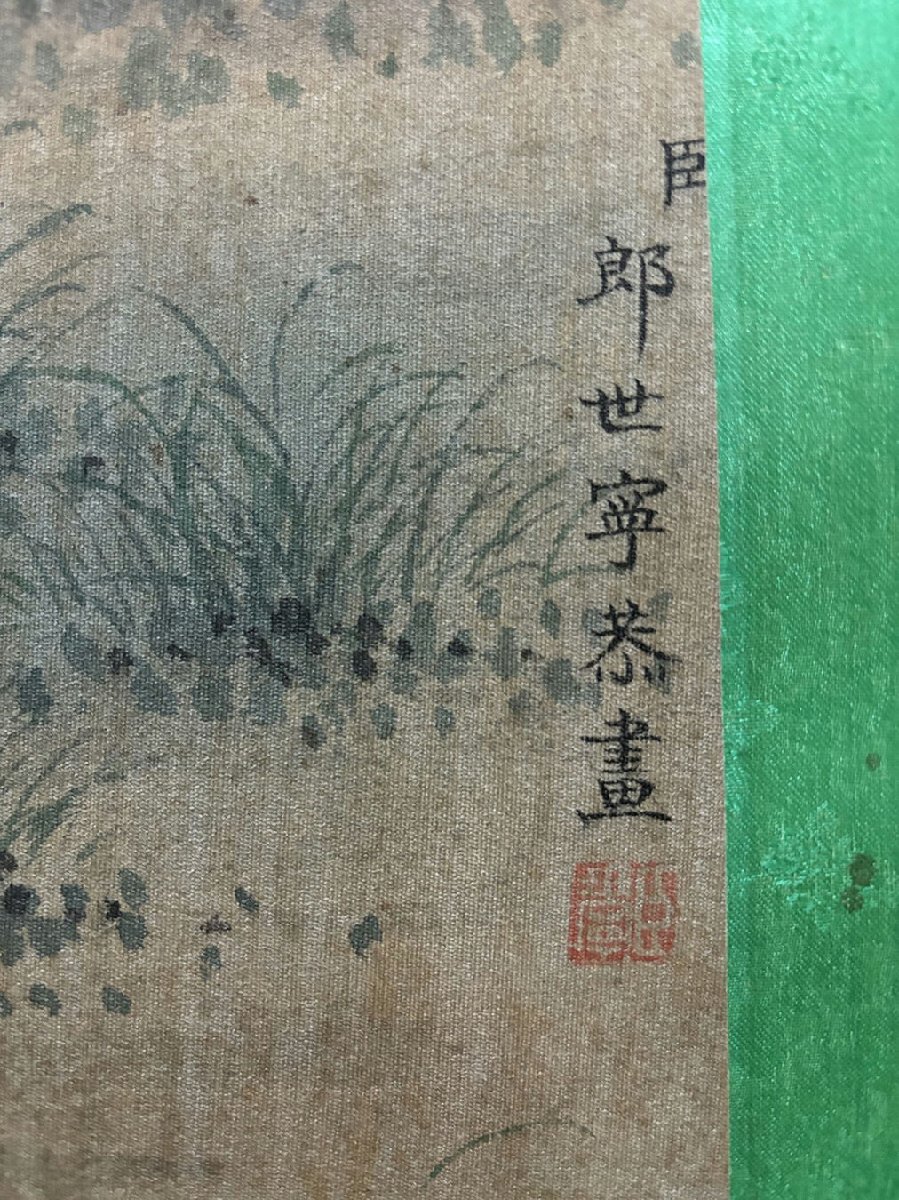 臣
郎世寧恭畫